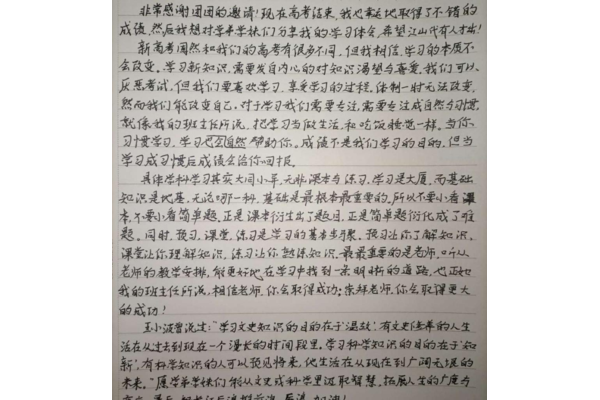 非常感谢团团的邀请!现在高考结束,我也幸运地取得了不错的
成绩,然后我想对学弟学妹们分享我的学习体会,希望江山代有人才出!
新高考固然和我们的高考有很多不同,但我相信,学习的本质不
会改变。学习新知识,需要发自内心的对知识渴望与喜爱,我们可以
厌恶考试,但我们要喜欢学习,享受学习的过程。体制一时无法改变,
然而我们能改变自己,对于学习我们需要专注,需要专注成自然与习惯,
就像我的班主任所说,把学习当做生活,和吃饭睡觉一样。当你
习惯学习,学习也会自然帮助你。成绩不是我们学习的目的,但当
学习成习惯后成绩会给你回报。
具体学科学习其实大同小异,无非课本与练习,学习是大厦,而基础
知识是地基,无论哪一科,基础是最根本最重要的,所以不要小看课
本,不要小看简单题,正是课本衍生出了题目,正是简单题衍化成了难
题。同时,预习、课堂、练习是学习的基本步骤。预习让你了解知识,
课堂让你理解知识,练习让你熟练知识,最最重要的是老师,听从
老师的教学安排,能更好地在学习中找到一条明晰的道路,也正如
我的班主任所说,相信老师,你会取得成功;崇拜老师,你会取得更大
的成功!
王小波曾说过:"学习文史知识的目的在于'温故',有文史修养的人生
活在从过去到现在一个漫长的时间段里。学习科学知识的目的在于'知
新',有科学知识的人可以预见将来,他生活在从现在到广阔无垠的
未来。"愿学弟学妹们能从文史或科学里汲取智慧,拓展人生的广度与